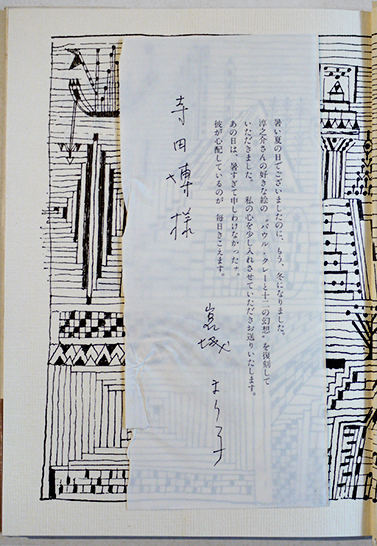 暑い夏の日でございましたのに、もう、冬になりました。
淳之介さんの好きな絵の“パウル・クレーと十二の幻想”を復刻して
いただきました。 私の心を少し入れさせていただきお送りいたします。
あの日は、暑すぎて申しわけなかったナ。
彼が心配しているのが 毎日きこえます。
寺田博様
宮城
まり子